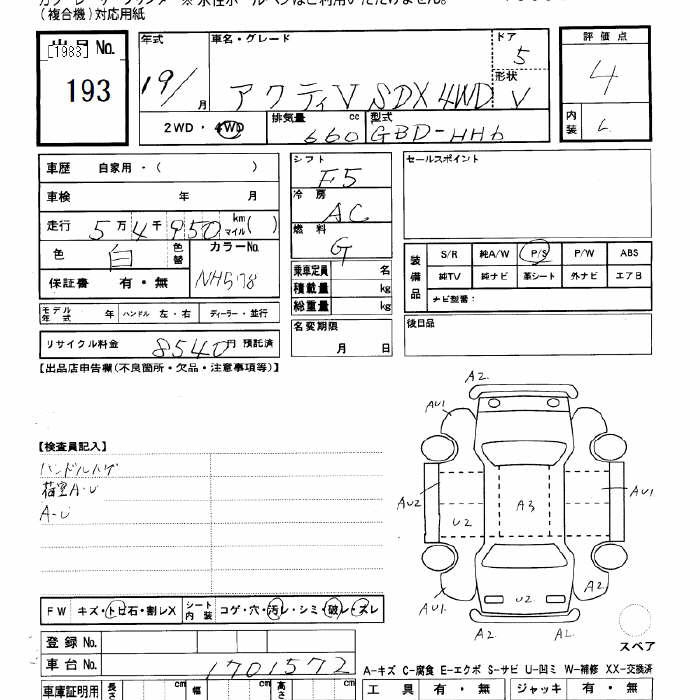 (複合機)対応用紙
[1983] No.
193
年式
19/
月
車名・グレード
アクティV SDX 4WD
ドア
5
形状
V
2WD・4WD
排気量
660
cc
型式
GBD-HH6
評価点
4
内装
車歴 自家用・( )
車検 年 月
走行 5万4千950 km マイル( )
色 白 色替 カラーNo.
保証書 有・無 NH578
モデル年式 年 ハンドル 左・右 ディーラー・並行
リサイクル料金 8540円 預託済
シフト
F5
冷房
AC
燃料
G
乗車定員 名
積載量 kg
総重量 kg
名変期限
月 日
セールスポイント
装備品
S/R 純A/W P/S P/W ABS
純TV 純ナビ 革シート 外ナビ エアB
ナビ型番:
後日品
【出品店申告欄(不良箇所・欠品・注意事項等)】
【検査員記入】
ハンドルハゲ
荷室A・U
A-U
FW キズ・トビ石・割レX シート内装 コゲ・穴・汚レ・シミ・破レ・スレ
登録No.
車台No. 1701572
車庫証明用 長さ cm 幅 cm 高さ cm
A2
AU1
AU2
U2
A3
AU1
AU1
U2
A2
A2
スペア
A-キズ C-腐食 E-エクボ S-サビ U-凹ミ W-補修 XX-交換済
工具 有・無 ジャッキ 有・無